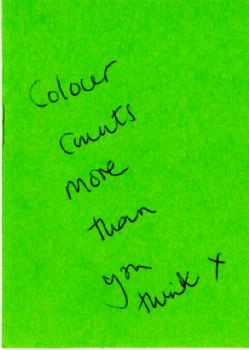 Colour
counts
more
than
you
think x